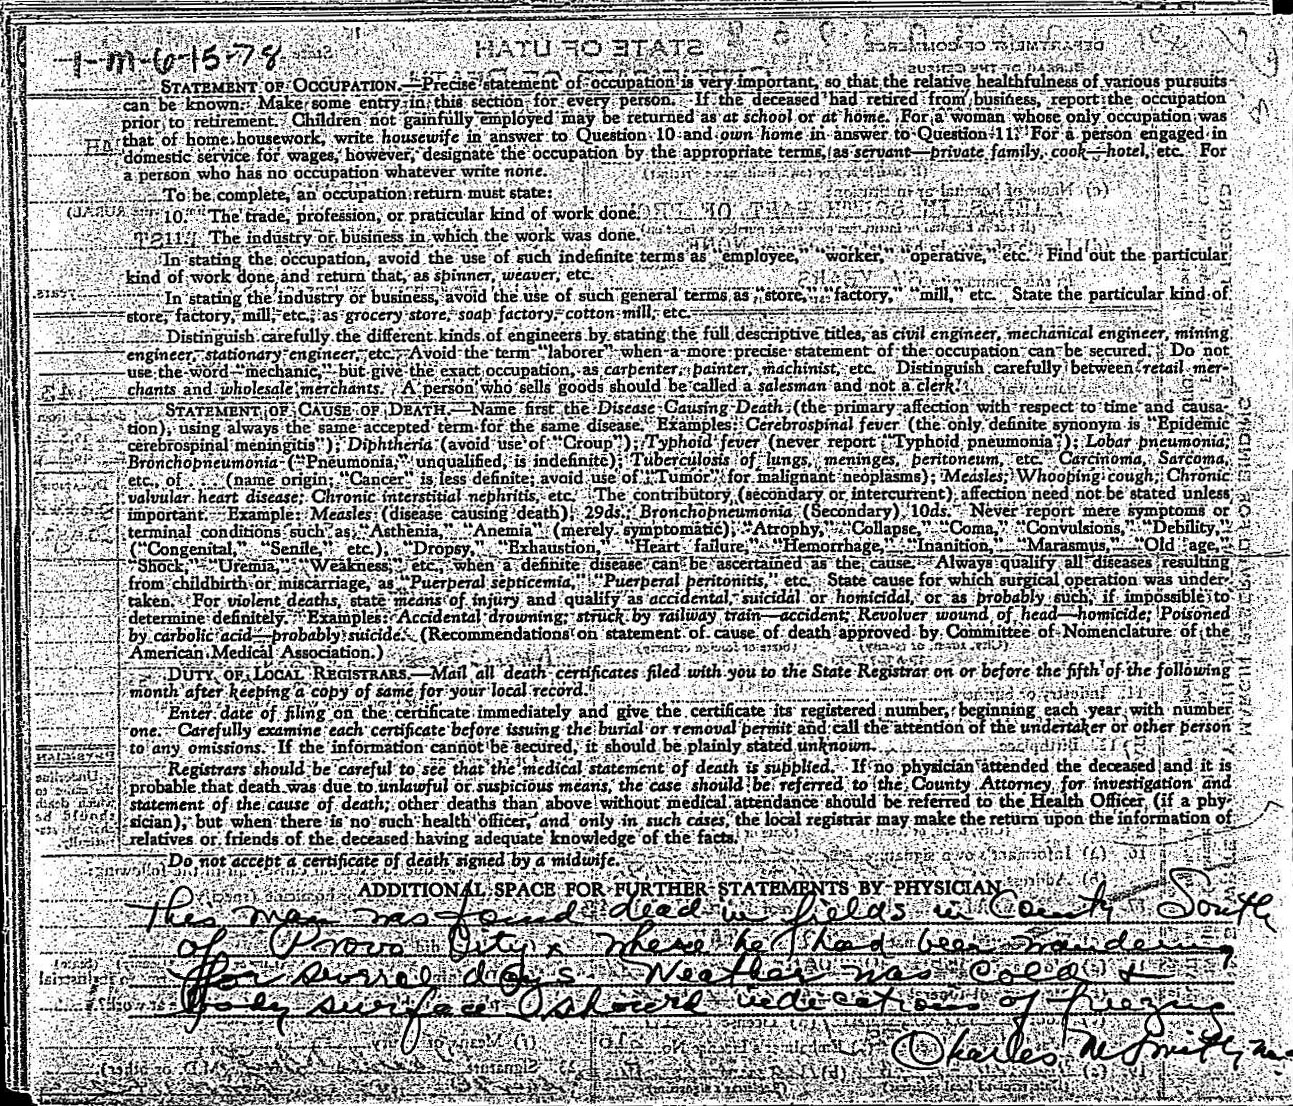 1-M-6-15-78
STATE OF UTAH
STATEMENT OF OCCUPATION.—Precise statement of occupation is very important, so that the relative healthfulness of various pursuits
can be known. Make some entry in this section for every person. If the deceased had retired from business, report the occupation
prior to retirement. Children not gainfully employed may be returned as at school or at home. For a woman whose only occupation was
that of home housework, write housewife in answer to Question 10 and own home in answer to Question 11. For a person engaged in
domestic service for wages, however, designate the occupation by the appropriate terms, as servant—private family, cook—hotel, etc. For
a person who has no occupation whatever write none.
To be complete, an occupation return must state:
10. The trade, profession, or praticular kind of work done.
11. The industry or business in which the work was done.
In stating the occupation, avoid the use of such indefinite terms as "employee," "worker," "operative," etc. Find out the particular
kind of work done and return that, as spinner, weaver, etc.
In stating the industry or business, avoid the use of such general terms as "store," "factory," "mill," etc. State the particular kind of
store, factory, mill, etc., as grocery store, soap factory, cotton mill, etc.
Distinguish carefully the different kinds of engineers by stating the full descriptive titles, as civil engineer, mechanical engineer, mining
engineer, stationary engineer, etc. Avoid the term "laborer" when a more precise statement of the occupation can be secured. Do not
use the word "mechanic," but give the exact occupation, as carpenter, painter, machinist, etc. Distinguish carefully between retail mer-
chants and wholesale merchants. A person who sells goods should be called a salesman and not a clerk.
STATEMENT OF CAUSE OF DEATH.—Name first the Disease Causing Death (the primary affection with respect to time and causa-
tion), using always the same accepted term for the same disease. Examples: Cerebrospinal fever (the only definite synonym is "Epidemic
cerebrospinal meningitis"); Diphtheria (avoid use of "Croup"); Typhoid fever (never report "Typhoid pneumonia"); Lobar pneumonia;
Bronchopneumonia ("Pneumonia," unqualified, is indefinite); Tuberculosis of lungs, meninges, peritoneum, etc. Carcinoma, Sarcoma,
etc., of (name origin; "Cancer" is less definite; avoid use of "Tumor" for malignant neoplasms); Measles; Whooping cough; Chronic
valvular heart disease; Chronic interstitial nephritis, etc. The contributory (secondary or intercurrent) affection need not be stated unless
important. Example: Measles (disease causing death), 29ds.; Bronchopneumonia (Secondary) 10ds. Never report mere symptoms or
terminal conditions such as "Asthenia," "Anemia" (merely symptomatic), "Atrophy," "Collapse," "Coma," "Convulsions," "Debility,"
("Congenital," "Senile," etc.), "Dropsy," "Exhaustion," "Heart failure," "Hemorrhage," "Inanition," "Marasmus," "Old age,"
"Shock," "Uremia," "Weakness," etc., when a definite disease can be ascertained as the cause. Always qualify all diseases resulting
from childbirth or miscarriage, as "Puerperal septicemia," "Puerperal peritonitis," etc. State cause for which surgical operation was under-
taken. For violent deaths, state means of injury and qualify as accidental, suicidal or homicidal, or as probably such, if impossible to
determine definitely. Examples: Accidental drowning; struck by railway train—accident; Revolver wound of head—homicide; Poisoned
by carbolic acid—probably suicide. (Recommendations on statement of cause of death approved by Committee of Nomenclature of the
American Medical Association.)
DUTY OF LOCAL REGISTRARS.—Mail all death certificates filed with you to the State Registrar on or before the fifth of the following
month after keeping a copy of same for your local record.
Enter date of filing on the certificate immediately and give the certificate its registered number, beginning each year with number
one. Carefully examine each certificate before issuing the burial or removal permit and call the attention of the undertaker or other person
to any omissions. If the information cannot be secured, it should be plainly stated unknown.
Registrars should be careful to see that the medical statement of death is supplied. If no physician attended the deceased and it is
probable that death was due to unlawful or suspicious means, the case should be referred to the County Attorney for investigation and
statement of the cause of death; other deaths than above without medical attendance should be referred to the Health Officer, (if a phy-
sician), but when there is no such health officer, and only in such cases, the local registrar may make the return upon the information of
relatives or friends of the deceased having adequate knowledge of the facts.
Do not accept a certificate of death signed by a midwife.
ADDITIONAL SPACE FOR FURTHER STATEMENTS BY PHYSICIAN
This man was found dead in fields in County South
of Provo City x where he had been wandering
for sevral days. Weather was cold &
body surface showed indications of freezing
Charles M Smith, M.D.